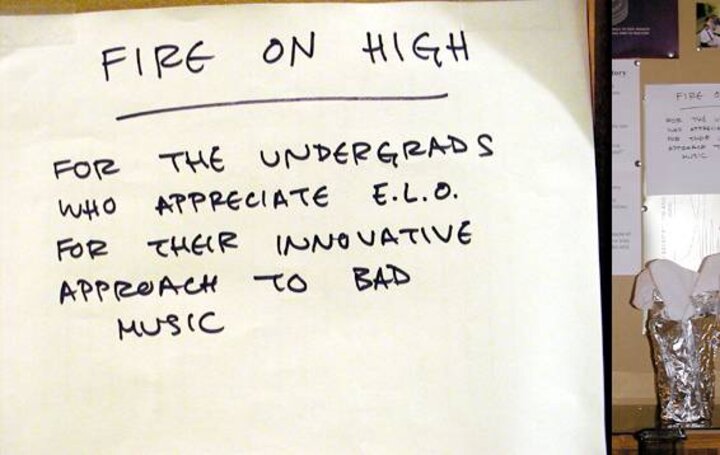 FIRE ON HIGH
FOR THE UNDERGRADS
WHO APPRECIATE E.L.O.
FOR THEIR INNOVATIVE
APPROACH TO BAD
MUSIC
FIRE
FOR THE
WHO
FOR THEIR
APPROACH TO
MUSIC